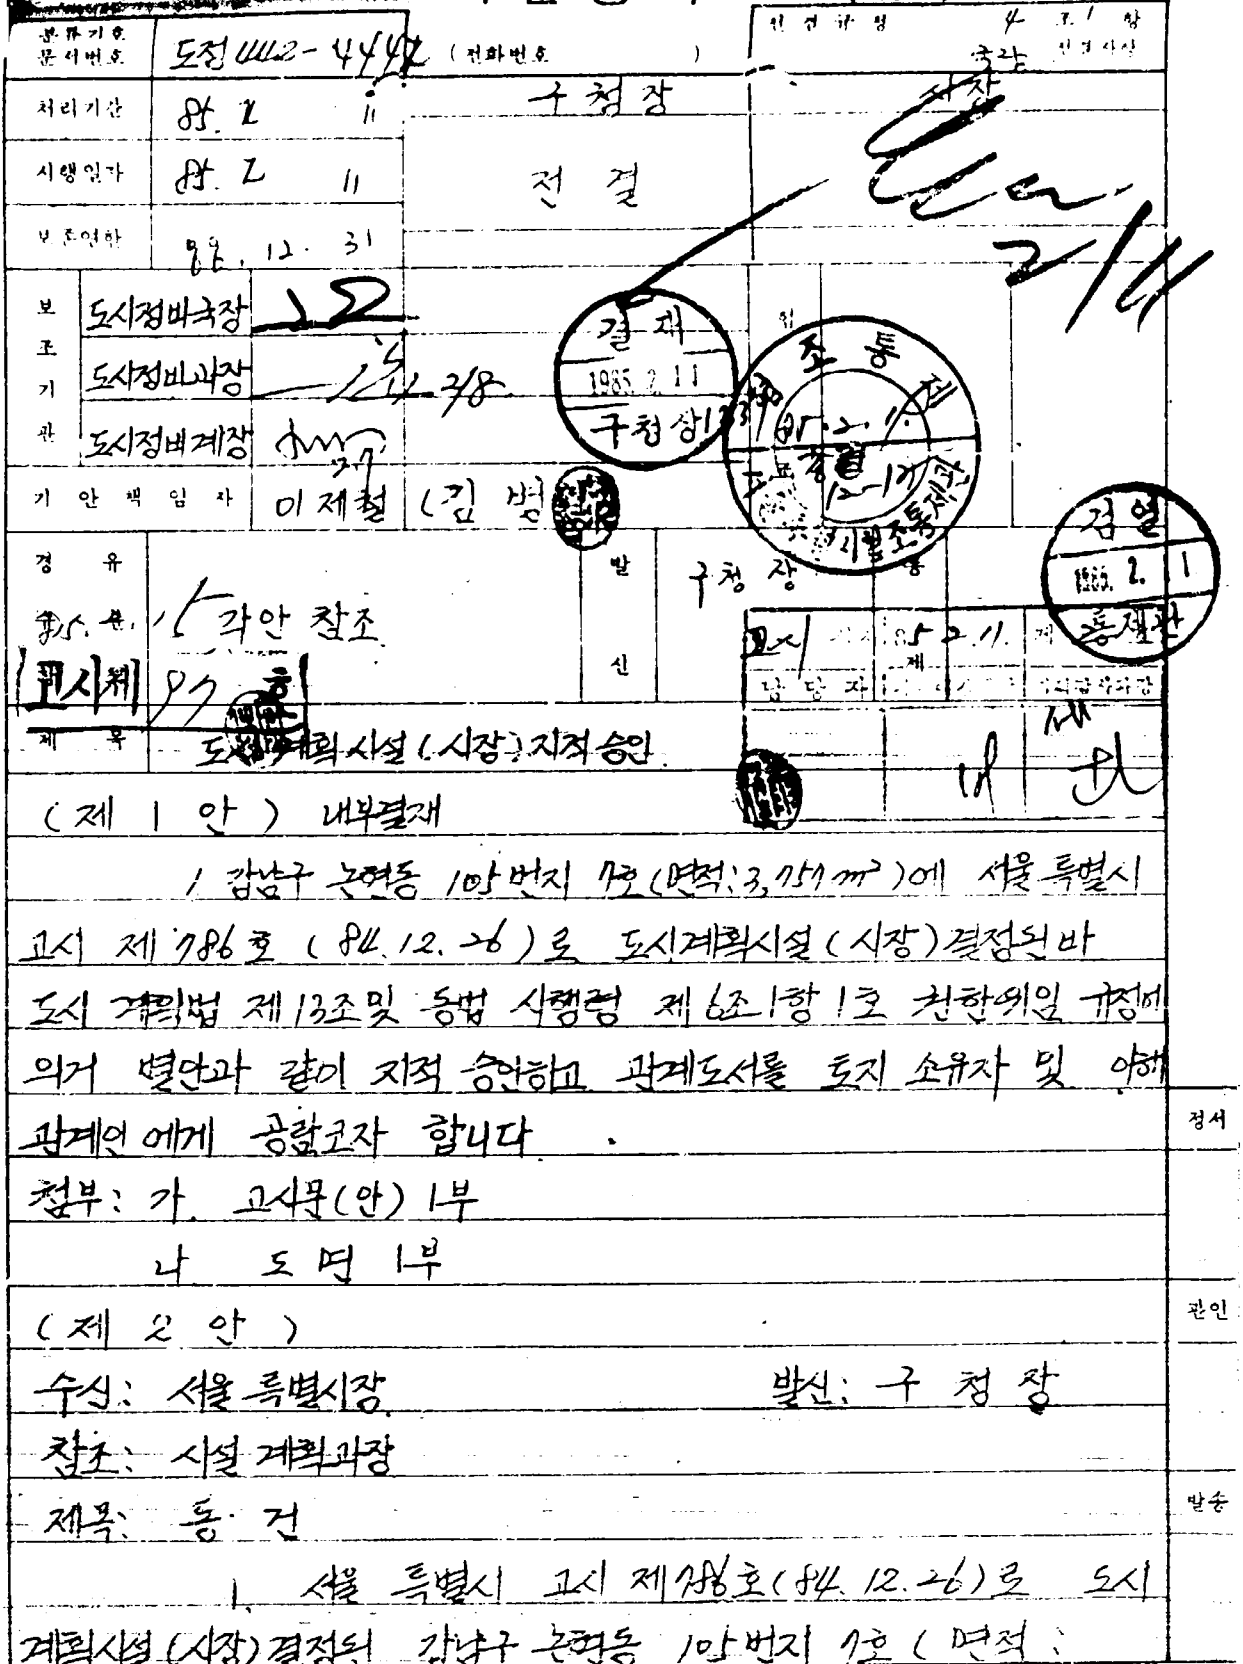 분류기호
문서번호 도정442-444 (전화번호 )
위임규정 4조 1항
국장 전결사항
처리기간 85. 2 11
구청장
시장
시행일자 85. 2 11
전결
보존연한 12. 31
2/11
보조기관
도시정비국장
도시정비과장 2/8
도시정비계장 2.7
결재
1985. 2. 11
구청장
조통제
85.2.11
검열
1985. 2. 1
통제관
기안책임자 이제철 (김병
경유
발신 구청장
각안 참조
고시 85 2. 11.
고시제 97 호
제목 도시계획시설(시장)지적승인
(제 1 안) 내부결재
1. 강남구 논현동 105번지 7호(면적:3,757㎡)에 서울특별시
고시 제786호 (84.12.26)로 도시계획시설(시장)결정된바
도시계획법 제13조및 동법 시행령 제6조1항1호 권한위임 규정에
의거 별안과 같이 지적 승인하고 관계도서를 토지 소유자 및 이해
관계인에게 공람코자 합니다.
첨부: 가. 고시문(안) 1부
나 도면 1부
(제 2 안)
수신: 서울특별시장 발신: 구청장
참조: 시설계획과장
제목: 동건
1. 서울특별시 고시 제786호(84.12.26)로 도시
계획시설(시장)결정된 강남구 논현동 105번지 7호(면적:
정서
관인
발송